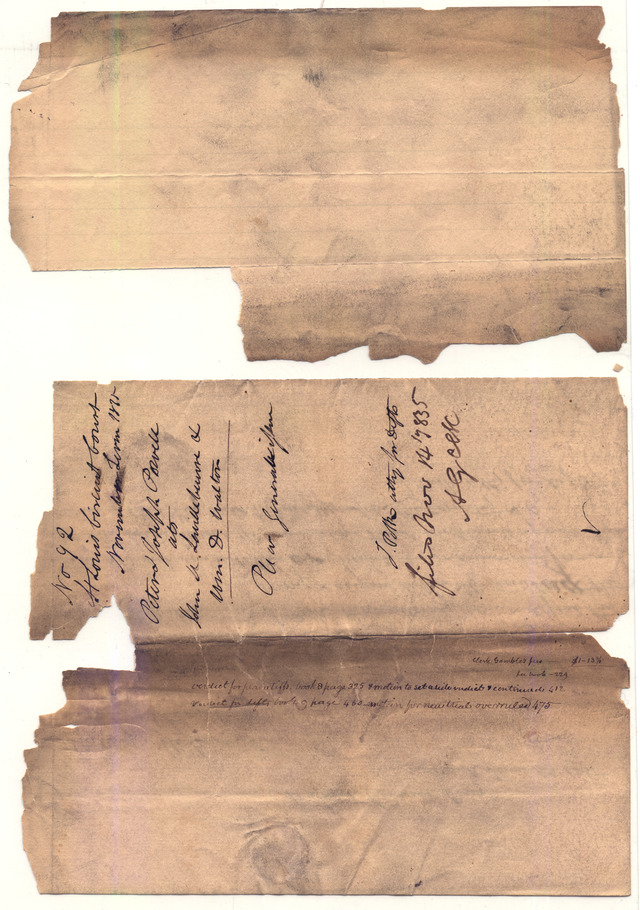 No 92
St Louis Circuit Court
November Term 1835
Peter & Joseph Powell
ats
John N.
Wm. D. Walton
Plea General issue
atty for Defts
filed Nov 14th 1835
Clerk Gambles fees $1-13
verdict for plaintiffs, book 8 page 395 & motion to set aside verdict & continued 412
verdict for defts book page 460 motion for new trial overruled 475